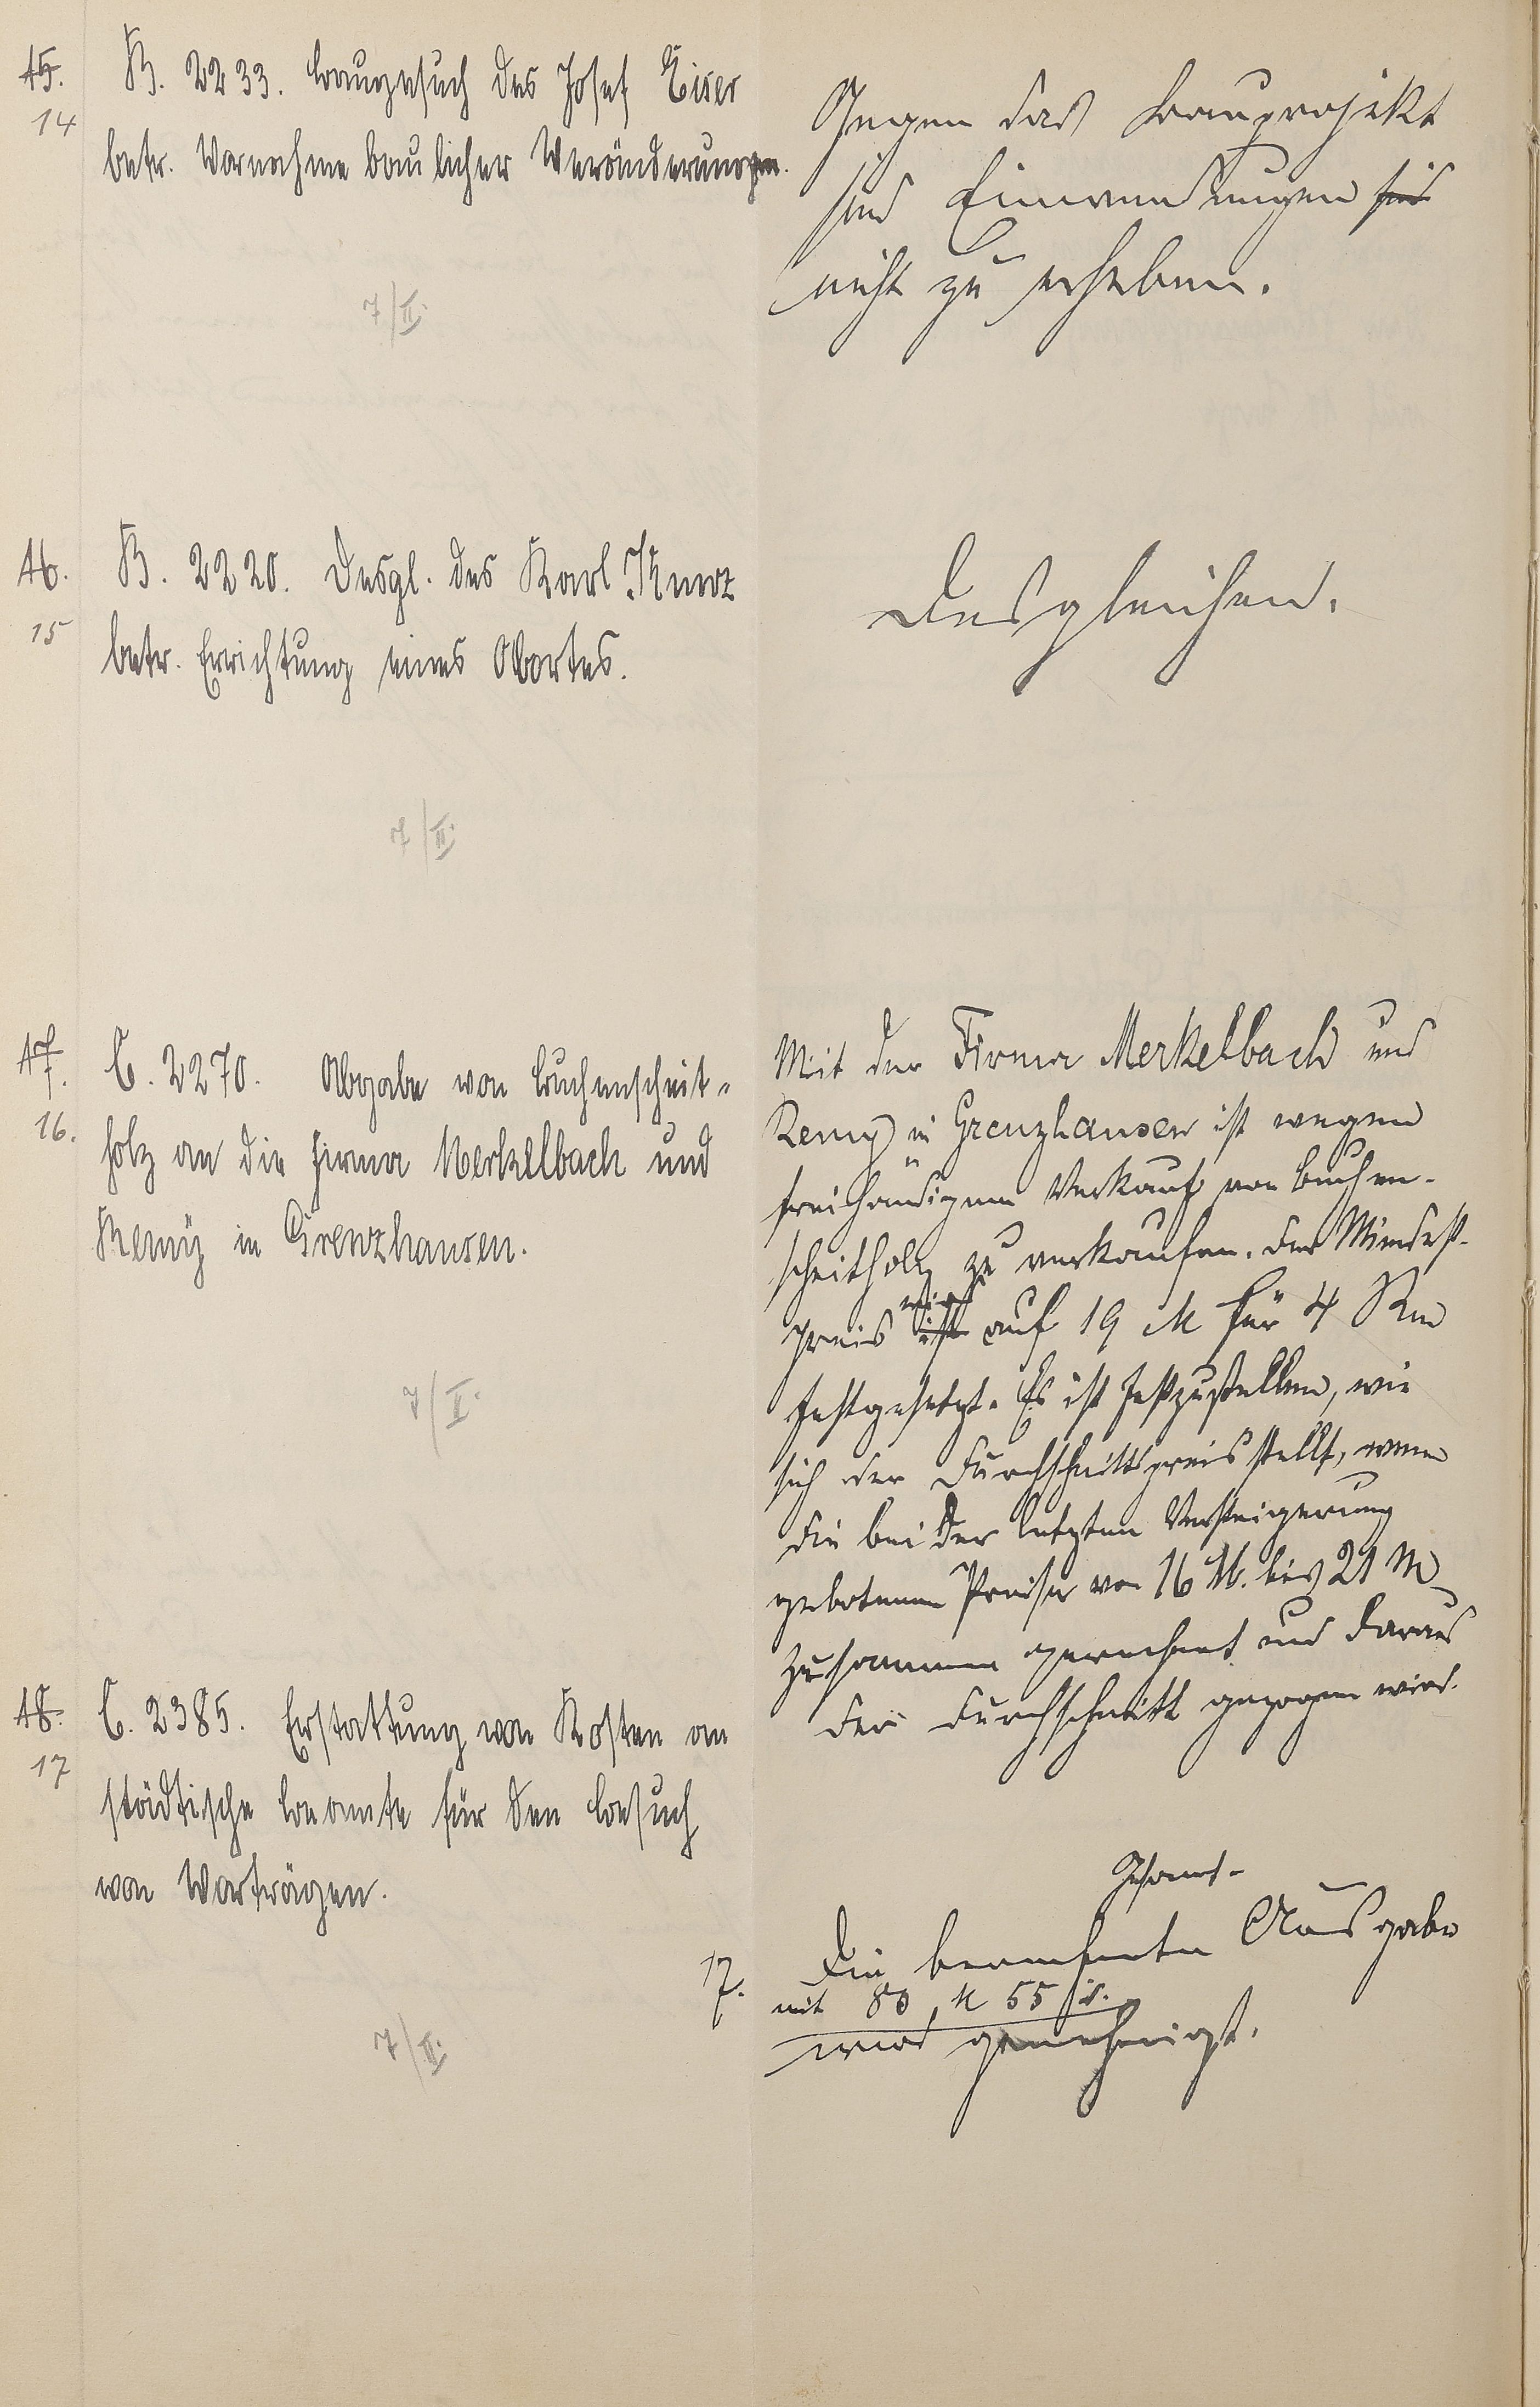 15.
14
B. 2233. Baugesuch des Josef Eiser
betr. Vornahme baulicher Veränderungen.
7/II.
Gegen das Bauprojekt
sind Einwendungen sind
nicht zu erheben.
16.
15
B. 2220. Desgl. des Karl Kurz
betr. Errichtung eines Abortes.
7/II.
Desgleichen.
17.
16.
C. 2270. Abgabe von Buchenscheit-
holz an die Firma Merkelbach und
Remy in Grenzhausen.
7/II.
Mit der Firma Merkelbach und
Remy in Grenzhausen ist wegen
freihändigem Verkauf von Buchen-
scheitholz zu verkaufen. Der Mindest-
wird
preis ist auf 19 M für 4 Rm
festgesetzt. Es ist festzustellen, wie
sich der Durchschnittspreis stellt, wenn
die bei der letzten Versteigerung
gebotenen Preise von 16 M. bis 21 M
zusammen gerechnet und daraus
der Durchschnitt gezogen wird.
18.
17
C. 2385. Erstattung von Kosten an
städtische Beamte für den Besuch
von Vorträgen.
7/II.
Gesamt-
17. Die berechnete Ausgabe
mit 80 M 55
wird genehmigt.